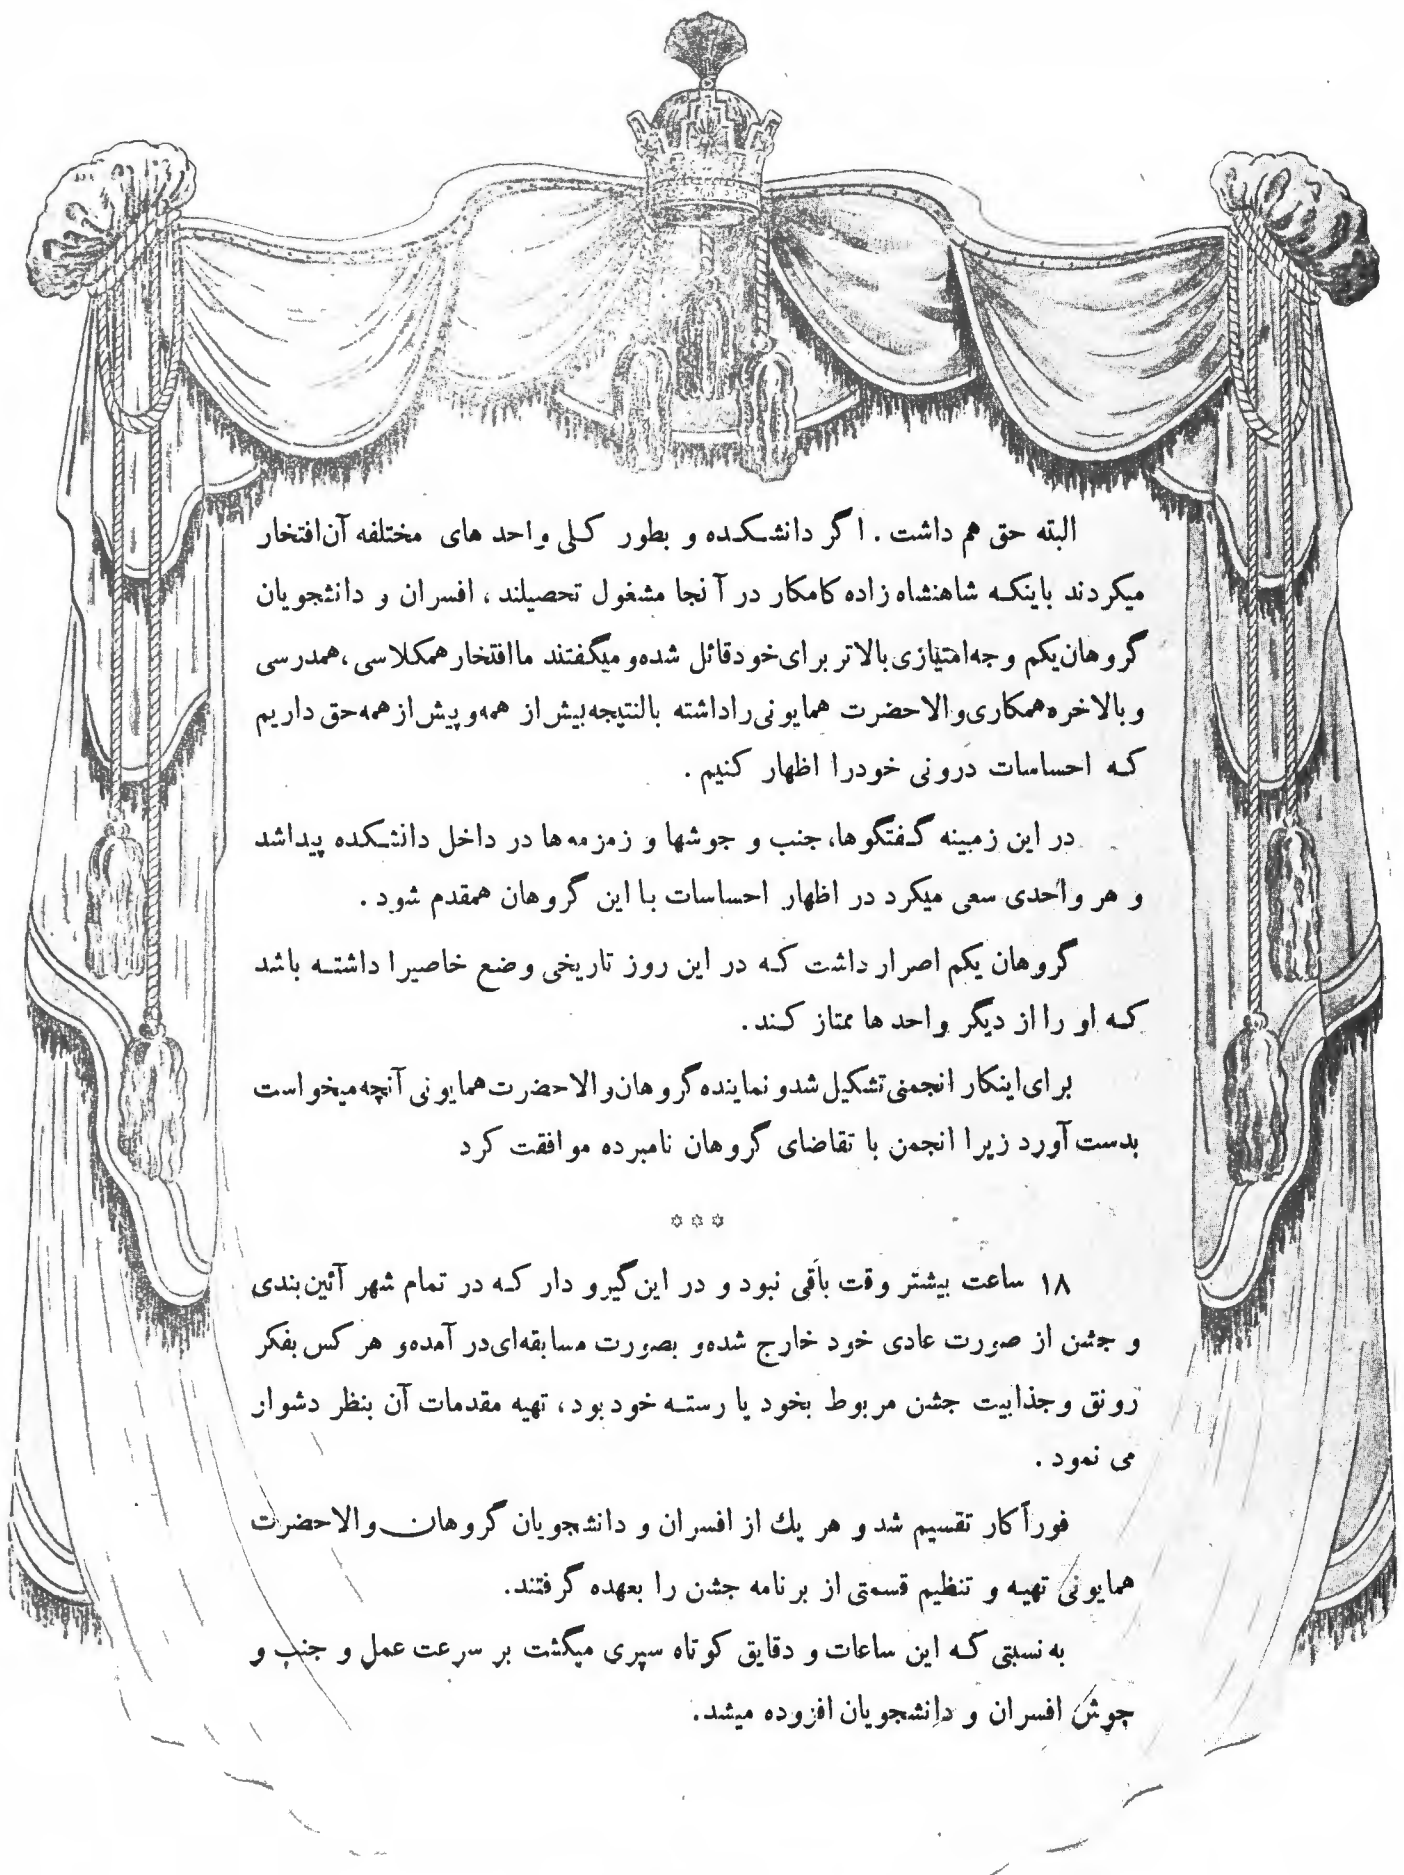 البته حق هم داشت . اگر دانشکده و بطور کلی واحد های مختلفه آن افتخار
میکردند باینکه شاهنشاه زاده کامکار در آنجا مشغول تحصیلند ، افسران و دانشجویان
گروهان یکم وجه امتیازی بالاتر برای خود قائل شده و میگفتند ما افتخار همکلاسی ، همدرسی
و بالاخره همکاری والاحضرت همایونی را داشته بالنتیجه بیش از همه و پیش از همه حق داریم
که احساسات درونی خودرا اظهار کنیم .
در این زمینه گفتگوها، جنب و جوشها و زمزمه ها در داخل دانشکده پیدا شد
و هر واحدی سعی میکرد در اظهار احساسات با این گروهان همقدم شود .
گروهان یکم اصرار داشت که در این روز تاریخی وضع خاصیرا داشته باشد
که او را از دیگر واحد ها ممتاز کند .
برای اینکار انجمنی تشکیل شد و نماینده گروهان والاحضرت همایونی آنچه میخواست
بدست آورد زیرا انجمن با تقاضای گروهان نامبرده موافقت کرد
✡ ✡ ✡
۱۸ ساعت بیشتر وقت باقی نبود و در این گیرو دار که در تمام شهر آئین بندی
و جشن از صورت عادی خود خارج شده و بصورت مسابقه ای در آمده و هر کس بفکر
رونق و جذابیت جشن مربوط بخود یا رسته خود بود ، تهیه مقدمات آن بنظر دشوار
می نمود .
فوراً کار تقسیم شد و هر یك از افسران و دانشجویان گروهان والاحضرت
همایونی تهیه و تنظیم قسمتی از برنامه جشن را بعهده گرفتند.
به نسبتی که این ساعات و دقایق کوتاه سپری میگشت بر سرعت عمل و جنب و
جوش افسران و دانشجویان افزوده میشد.